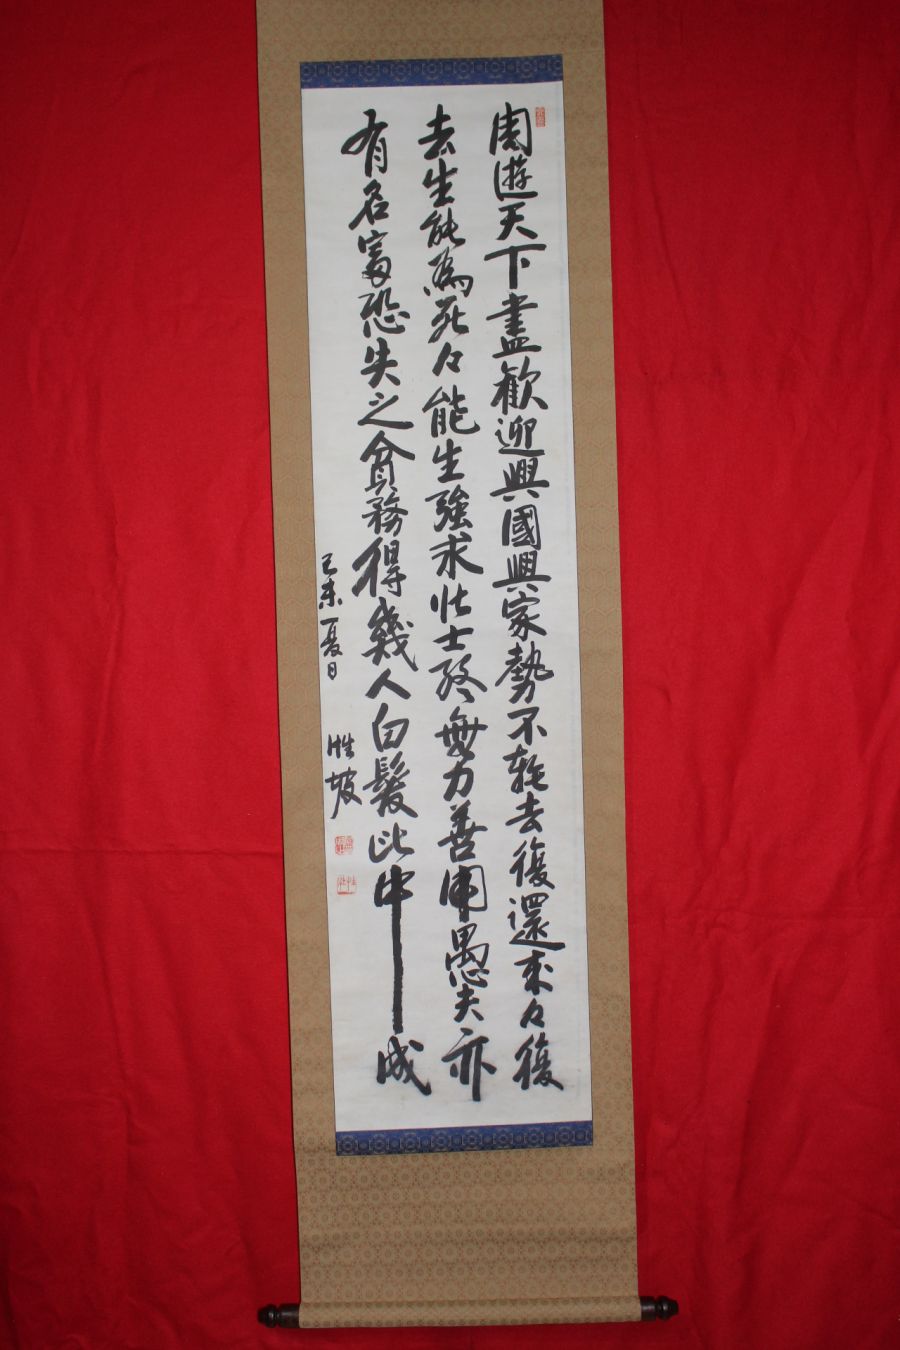 周遊天下盡歡迎興國興家勢不輕去復還来々復
去生能為死々能生強求壮士終無力善用愚夫亦
有名富恐失之貧務得幾人白髮此中成
己未夏日
坡